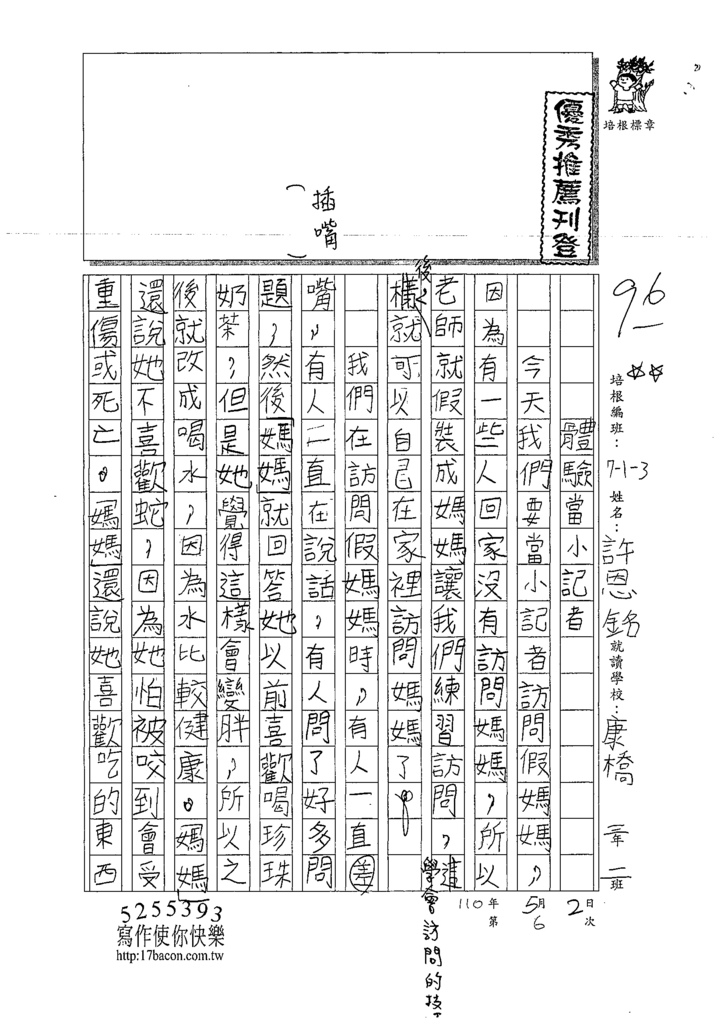 培根標章
優秀推薦刊登
（插嘴）
96
培根編班：7-1-3 姓名：許恩銘 就讀學校：康橋 三年二班
體驗當小記者
今天我們要當小記者訪問假媽媽，
因為有一些人回家沒有訪問媽媽，所以
老師就假裝成媽媽讓我們練習訪問，這
學會訪問的技
後
樣就可以自己在家裡訪問媽媽了。
我們在訪問假媽媽時，有人一直差
嘴，有人一直在說話，有人問了好多問
題，然後媽媽就回答她以前喜歡喝珍珠
奶茶，但是她覺得這樣會變胖，所以之
後就改成喝水，因為水比較健康。媽媽
還說她不喜歡蛇，因為她怕被咬到會受
重傷或死亡。媽媽還說她喜歡吃的東西
110年5月2日
第6次
5255393
寫作使你快樂
http:17bacon.com.tw